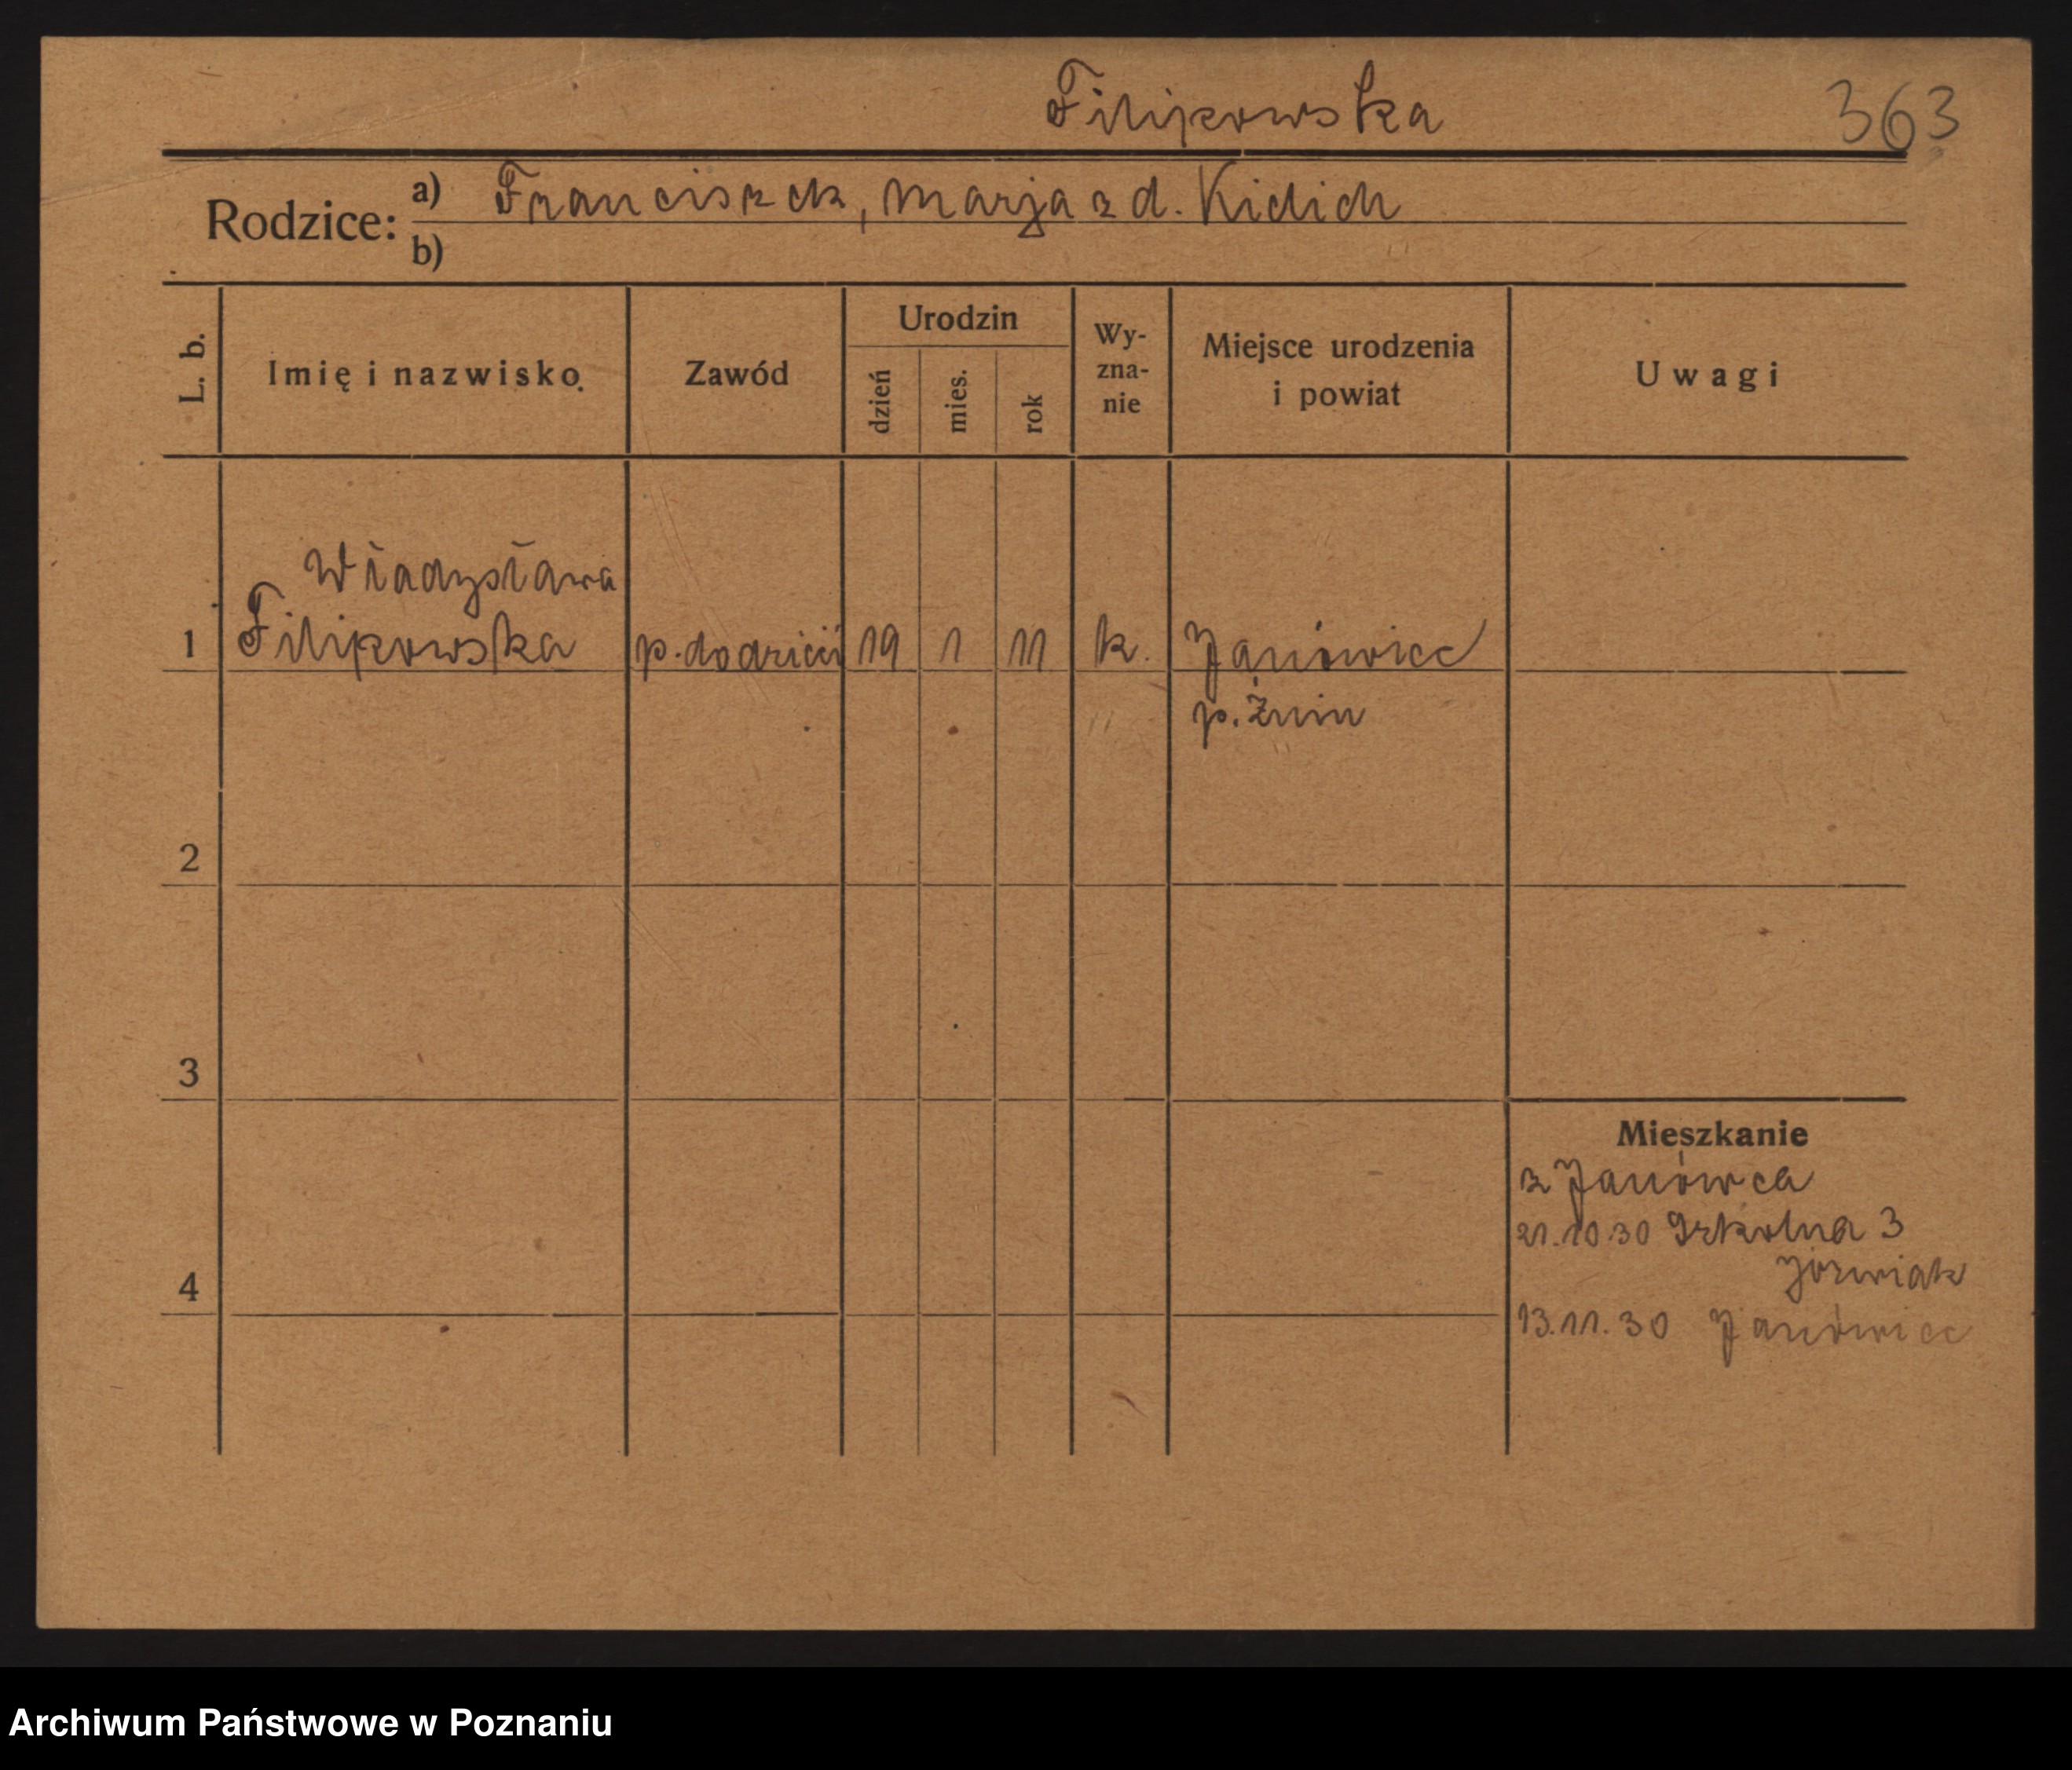 Filipowska 363
Rodzice: a) Franciszek, Marja z d. Kidich
b)
L. b. Imię i nazwisko. Zawód Urodzin dzień mies. rok Wy-zna-nie Miejsce urodzenia i powiat Uwagi
Władysława
1 Filipowska p. do dzieci 19 1 11 k. Janówiec
p. Żnin
2
3
Mieszkanie
z Janówca
21.10.30 Szkolna 3
Józwiak
4
13.11.30 Janówiec
Archiwum Państwowe w Poznaniu